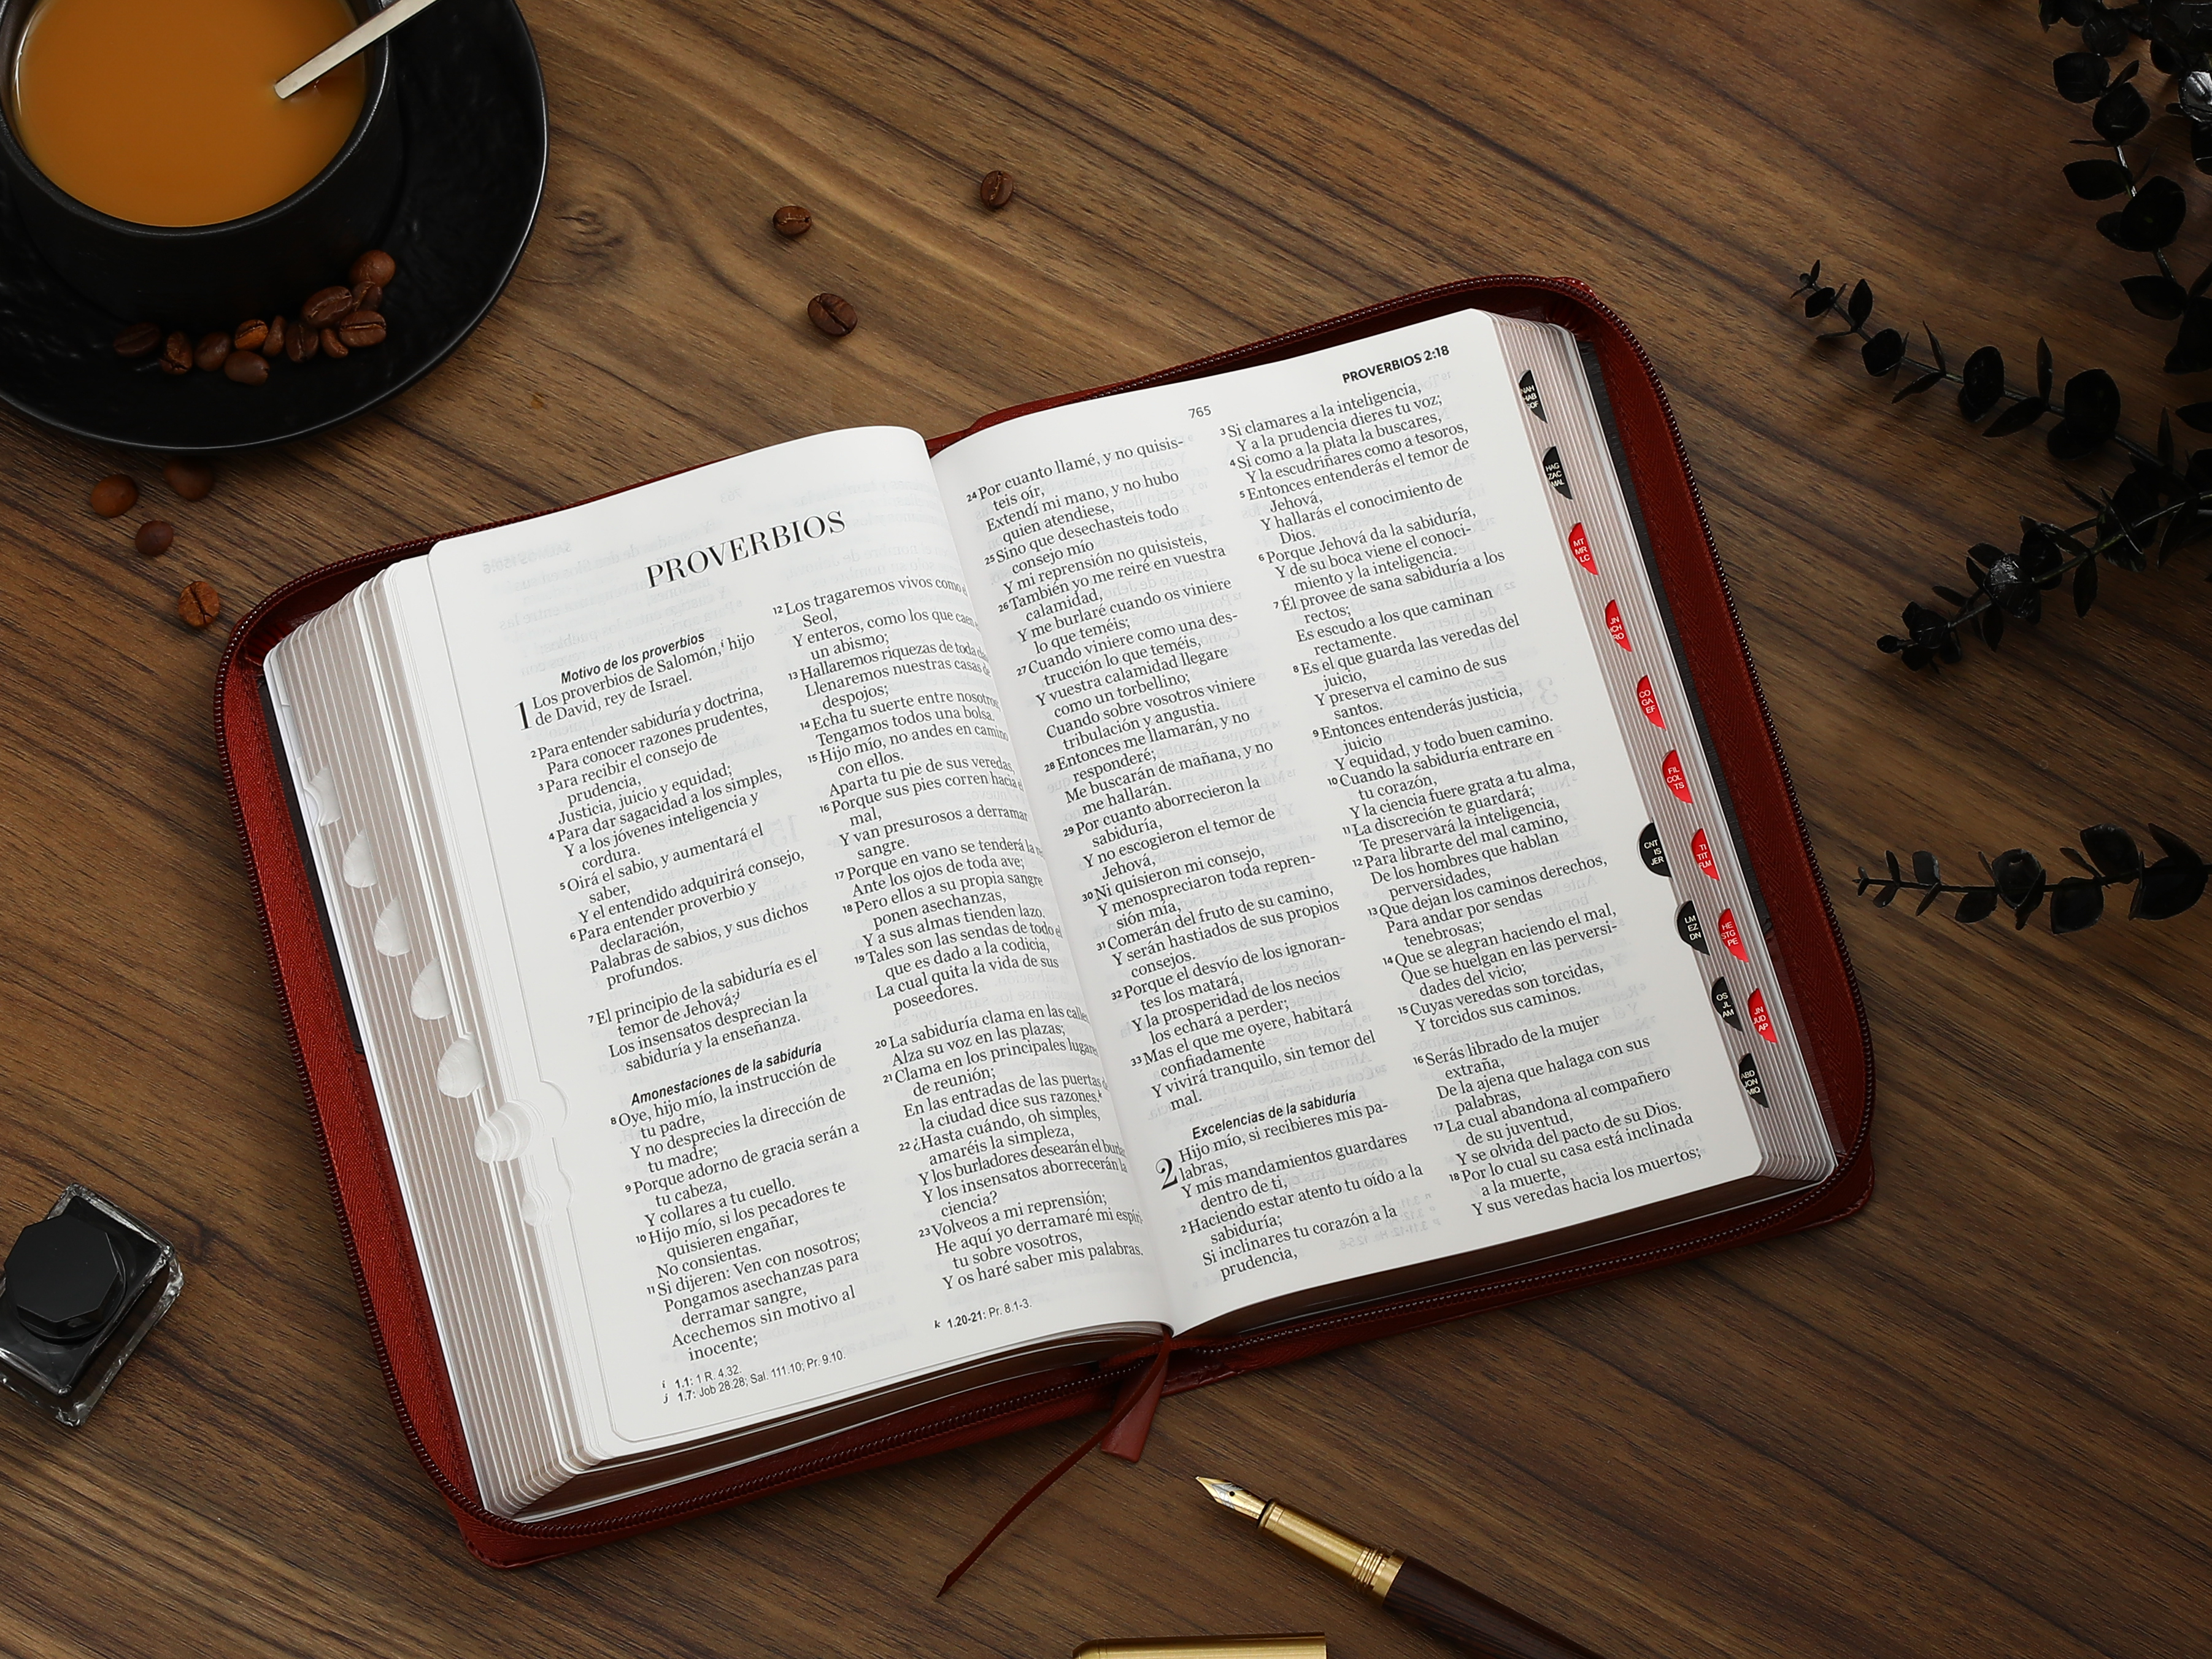 PROVERBIOS
Motivo de los proverbios
1 Los proverbios de Salomón,i hijo
de David, rey de Israel.
2 Para entender sabiduría y doctrina,
Para conocer razones prudentes,
3 Para recibir el consejo de
prudencia,
Justicia, juicio y equidad;
4 Para dar sagacidad a los simples,
Y a los jóvenes inteligencia y
cordura.
5 Oirá el sabio, y aumentará el
saber,
Y el entendido adquirirá consejo,
6 Para entender proverbio y
declaración,
Palabras de sabios, y sus dichos
profundos.
7 El principio de la sabiduría es el
temor de Jehová;j
Los insensatos desprecian la
sabiduría y la enseñanza.
Amonestaciones de la sabiduría
8 Oye, hijo mío, la instrucción de
tu padre,
Y no desprecies la dirección de
tu madre;
9 Porque adorno de gracia serán a
tu cabeza,
Y collares a tu cuello.
10 Hijo mío, si los pecadores te
quisieren engañar,
No consientas.
11 Si dijeren: Ven con nosotros;
Pongamos asechanzas para
derramar sangre,
Acechemos sin motivo al
inocente;
i 1.1: 1 R. 4.32.
j 1.7: Job 28.28; Sal. 111.10; Pr. 9.10.
12 Los tragaremos vivos como el
Seol,
Y enteros, como los que caen
un abismo;
13 Hallaremos riquezas de toda
Llenaremos nuestras casas de
despojos;
14 Echa tu suerte entre nosotros
Tengamos todos una bolsa.
15 Hijo mío, no andes en camino
con ellos.
Aparta tu pie de sus veredas,
16 Porque sus pies corren hacia el
mal,
Y van presurosos a derramar
sangre.
17 Porque en vano se tenderá la
Ante los ojos de toda ave;
18 Pero ellos a su propia sangre
ponen asechanzas,
Y a sus almas tienden lazo.
19 Tales son las sendas de todo el
que es dado a la codicia,
La cual quita la vida de sus
poseedores.
20 La sabiduría clama en las calles
Alza su voz en las plazas;
21 Clama en los principales lugares
de reunión;
En las entradas de las puertas
la ciudad dice sus razones.k
22 ¿Hasta cuándo, oh simples,
amaréis la simpleza,
Y los burladores desearán el
Y los insensatos aborrecerán la
ciencia?
23 Volveos a mi reprensión;
He aquí yo derramaré mi
tu sobre vosotros,
Y os haré saber mis palabras.
k 1.20-21: Pr. 8.1-3.
765
PROVERBIOS 2:18
24 Por cuanto llamé, y no quisis-
teis oír,
Extendí mi mano, y no hubo
quien atendiese,
25 Sino que desechasteis todo
consejo mío
Y mi reprensión no quisisteis,
26 También yo me reiré en vuestra
calamidad,
Y me burlaré cuando os viniere
lo que teméis;
27 Cuando viniere como una des-
trucción lo que teméis,
Y vuestra calamidad llegare
como un torbellino;
Cuando sobre vosotros viniere
tribulación y angustia.
28 Entonces me llamarán, y no
responderé;
Me buscarán de mañana, y no
me hallarán.
29 Por cuanto aborrecieron la
sabiduría,
Y no escogieron el temor de
Jehová,
30 Ni quisieron mi consejo,
Y menospreciaron toda repren-
sión mía,
31 Comerán del fruto de su camino,
Y serán hastiados de sus propios
consejos.
32 Porque el desvío de los ignoran-
tes los matará,
Y la prosperidad de los necios
los echará a perder;
33 Mas el que me oyere, habitará
confiadamente
Y vivirá tranquilo, sin temor del
mal.
Excelencias de la sabiduría
2 Hijo mío, si recibieres mis pa-
labras,
Y mis mandamientos guardares
dentro de ti,
2 Haciendo estar atento tu oído a la
sabiduría;
Si inclinares tu corazón a la
prudencia,
3 Si clamares a la inteligencia,
Y a la prudencia dieres tu voz;
4 Si como a la plata la buscares,
Y la escudriñares como a tesoros,
5 Entonces entenderás el temor de
Jehová,
Y hallarás el conocimiento de
Dios.
6 Porque Jehová da la sabiduría,
Y de su boca viene el conoci-
miento y la inteligencia.
7 Él provee de sana sabiduría a los
rectos;
Es escudo a los que caminan
rectamente.
8 Es el que guarda las veredas del
juicio,
Y preserva el camino de sus
santos.
9 Entonces entenderás justicia,
juicio
Y equidad, y todo buen camino.
10 Cuando la sabiduría entrare en
tu corazón,
Y la ciencia fuere grata a tu alma,
11 La discreción te guardará;
Te preservará la inteligencia,
12 Para librarte del mal camino,
De los hombres que hablan
perversidades,
13 Que dejan los caminos derechos,
Para andar por sendas
tenebrosas;
14 Que se alegran haciendo el mal,
Que se huelgan en las perversi-
dades del vicio;
15 Cuyas veredas son torcidas,
Y torcidos sus caminos.
16 Serás librado de la mujer
extraña,
De la ajena que halaga con sus
palabras,
17 La cual abandona al compañero
de su juventud,
Y se olvida del pacto de su Dios.
18 Por lo cual su casa está inclinada
a la muerte,
Y sus veredas hacia los muertos;
NAH
HAB
SOF
HAG
ZAC
MAL
MT
MR
LC
JN
HCH
RO
CO
GA
EF
FIL
COL
TS
CNT
IS
JER
TI
TIT
FLM
LM
EZ
DN
HE
STG
PE
OS
JL
AM
JN
JUD
AP
ABD
JON
MIQ